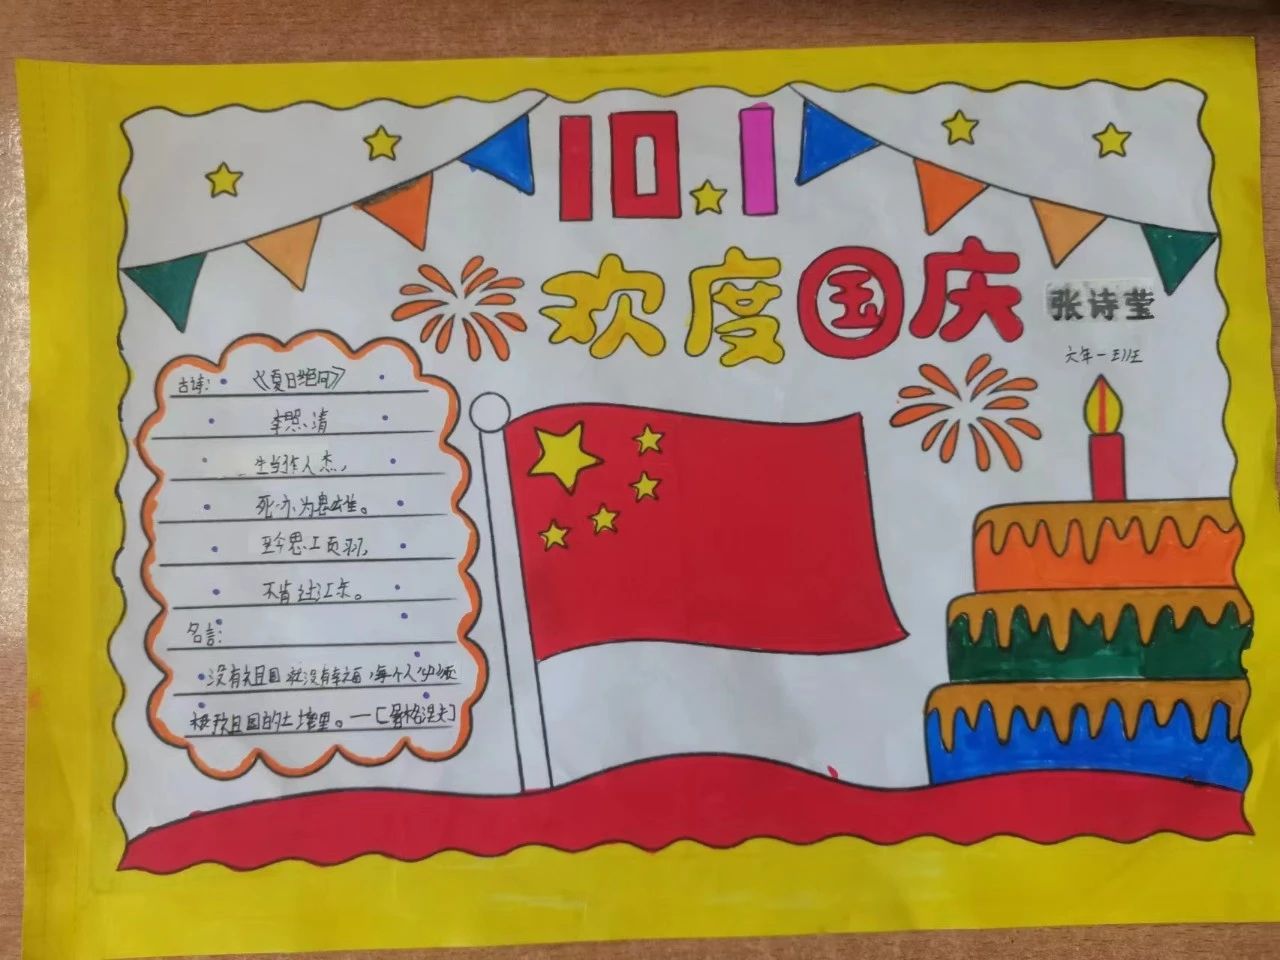 10.1
欢度国庆
张诗莹
六年一班
古诗：《夏日绝句》
李照清
生当作人杰，
死亦为鬼雄。
至今思工页羽，
不肯过江东。
名言：
没有祖国就没有幸福，每个人必须
植根祖国的土壤里。—[屠格涅夫]